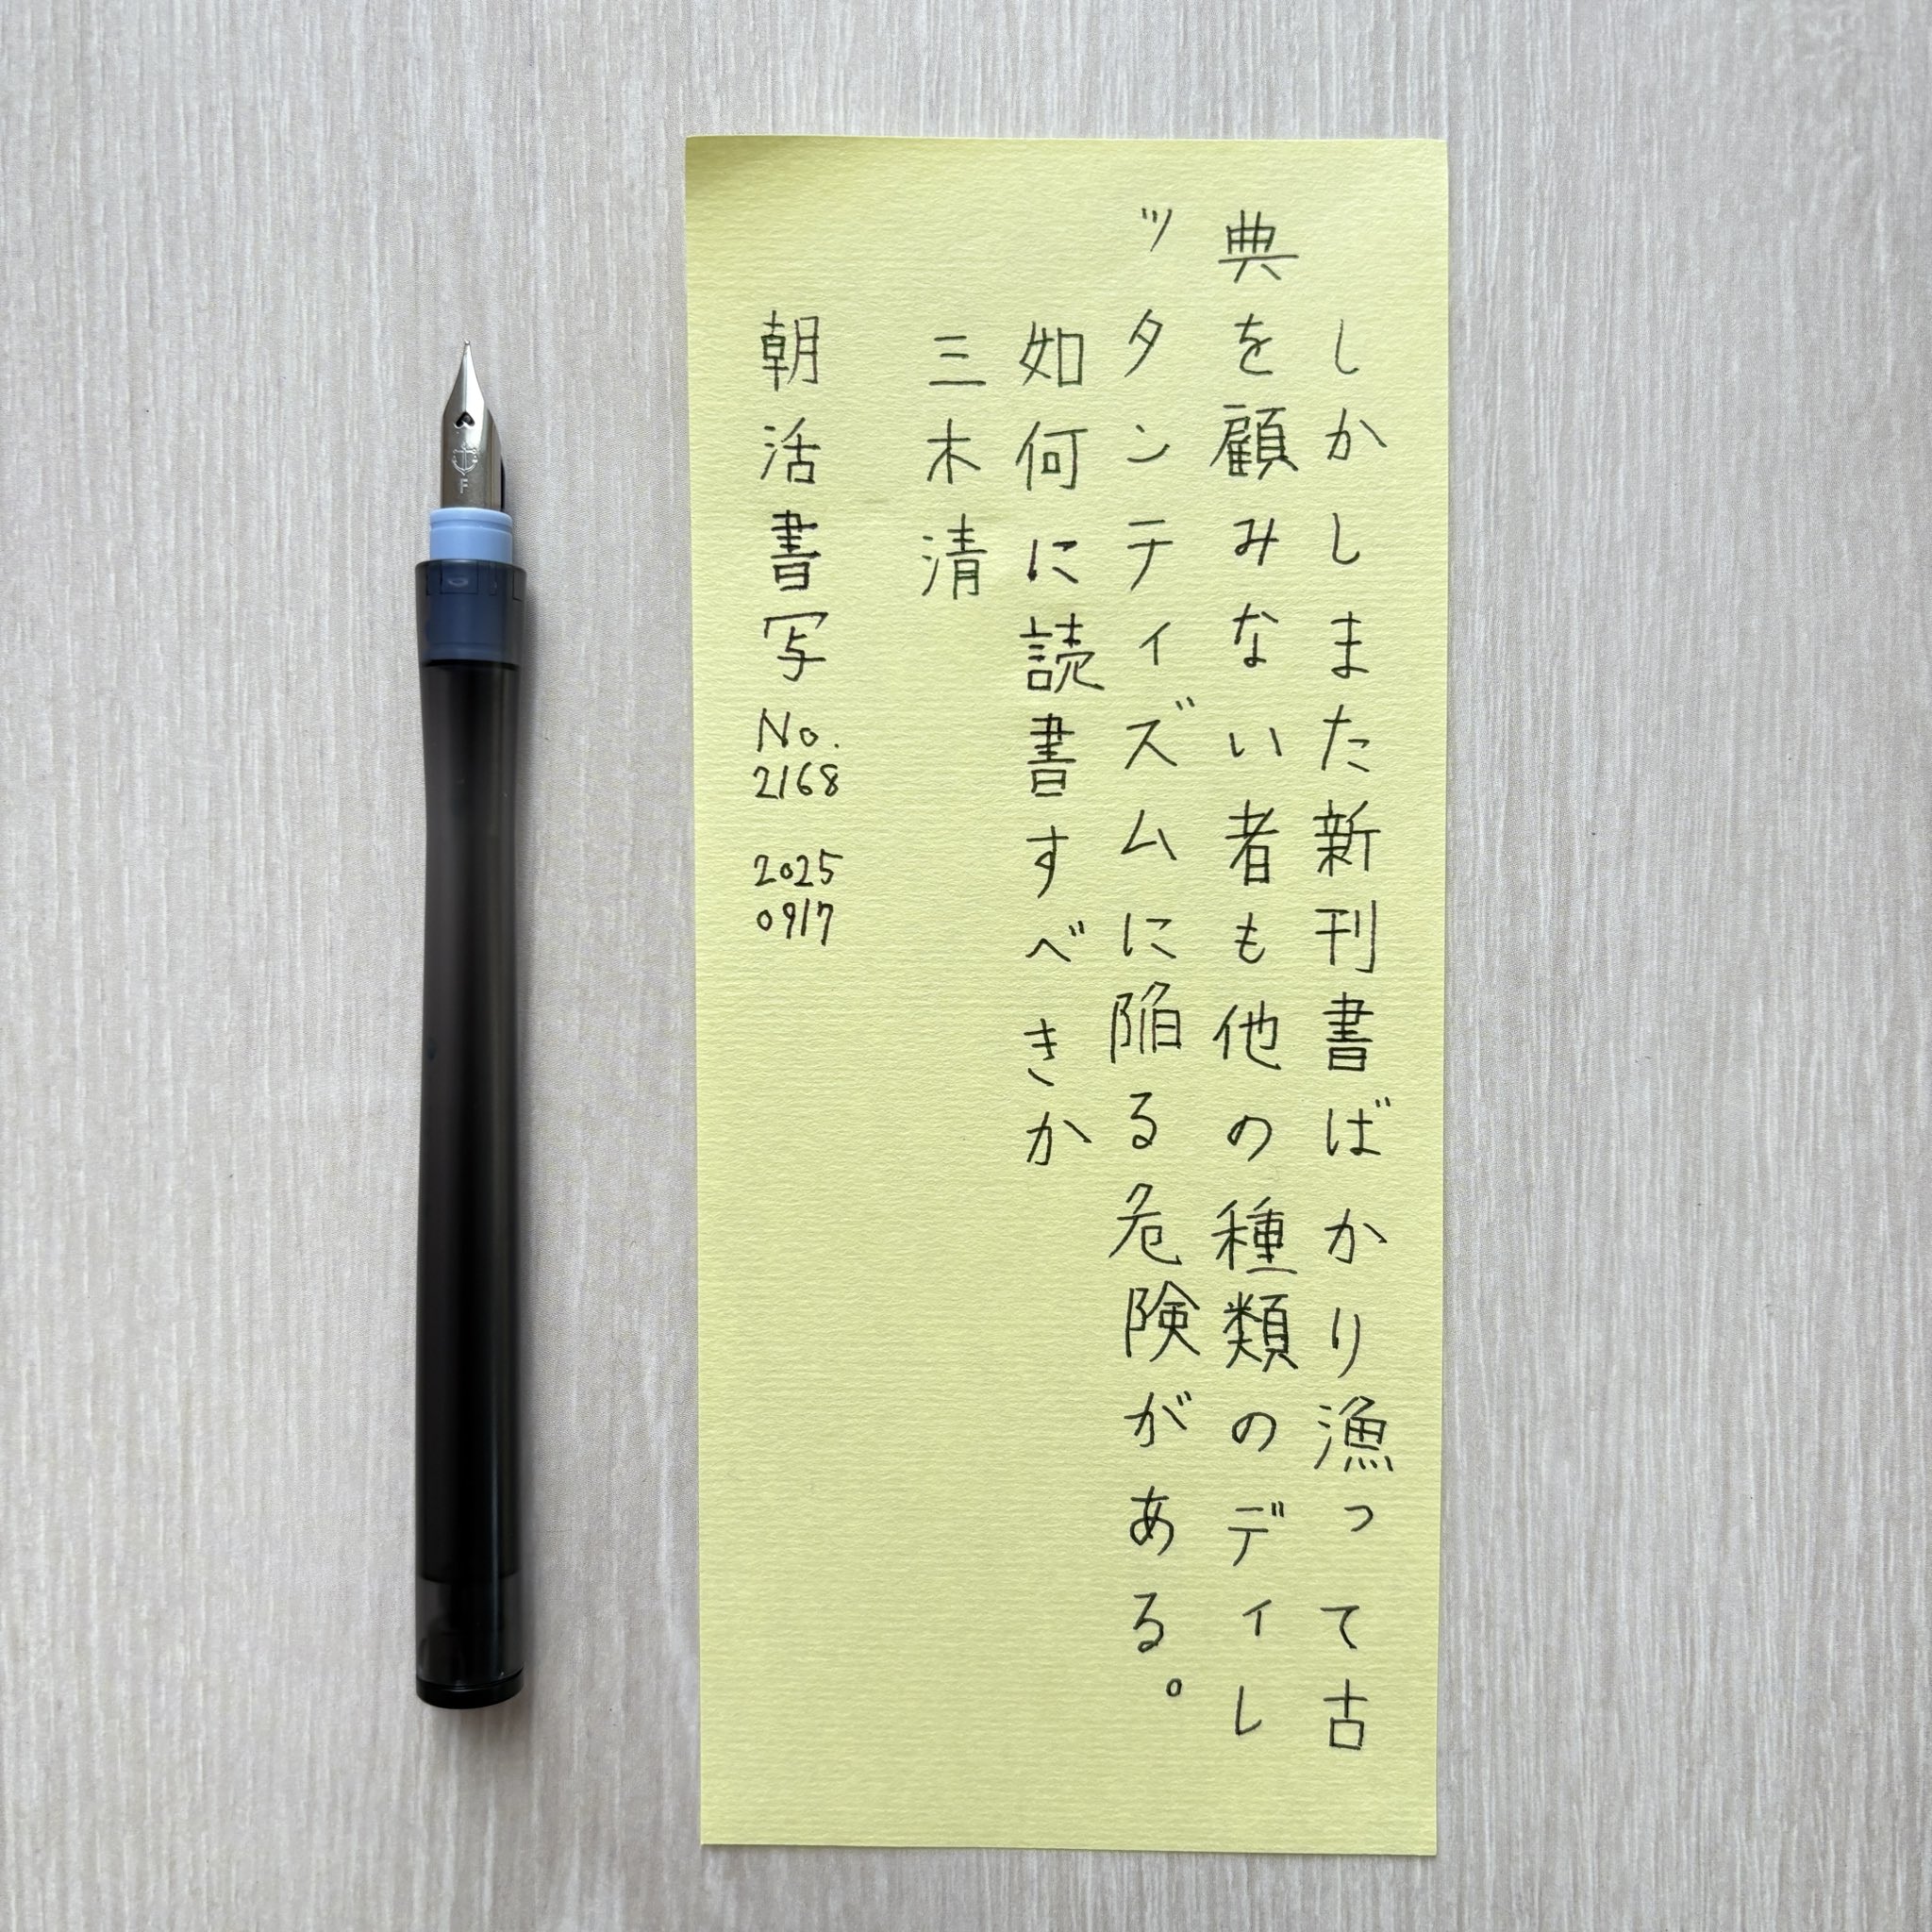 しかしまた新刊書ばかり漁って古
典を顧みない者も他の種類のディレ
ッタンティズムに陥る危険がある。
如何に読書すべきか
三木清
朝活書写
No.
2168
2025
0917
F